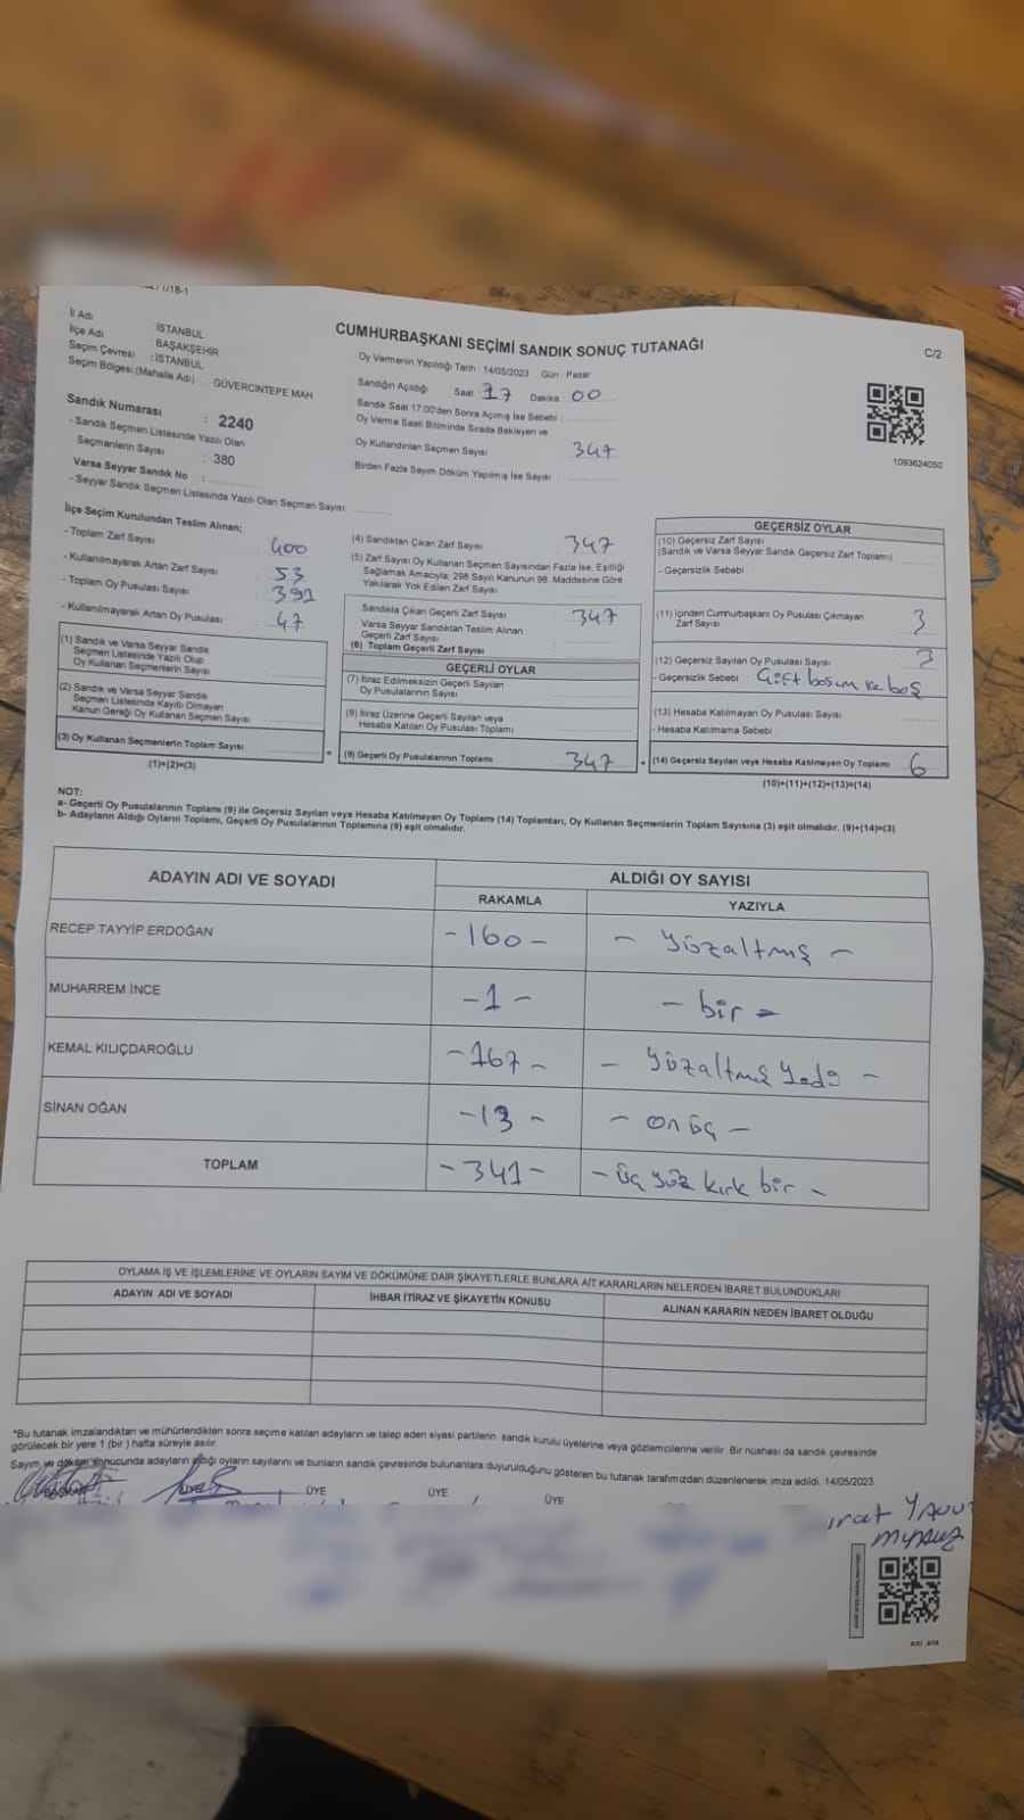 CUMHURBAŞKANI SEÇİMİ SANDIK SONUÇ TUTANAĞI
C/2
İl Adı İSTANBUL
İlçe Adı BAŞAKŞEHİR
Seçim Çevresi : İSTANBUL
Seçim Bölgesi (Mahalle Adı) GÜVERCİNTEPE MAH
Sandık Numarası : 2240
- Sandık Seçmen Listesinde Yazılı Olan
Seçmenlerin Sayısı : 380
Varsa Seyyar Sandık No :
- Seyyar Sandık Seçmen Listesinde Yazılı Olan Seçmen Sayısı
Oy Vermenin Yapıldığı Tarih : 14/05/2023 Gün : Pazar
Sandığın Açıldığı Saat 17 Dakika 00
Sandık Saat 17.00'den Sonra Açılmış İse Sebebi :
Oy Verme Saati Bitiminde Sırada Bekleyen ve
Oy Kullandırılan Seçmen Sayısı 347
Birden Fazla Sayım Döküm Yapılmış İse Sayısı
1093624050
İlçe Seçim Kurulundan Teslim Alınan;
- Toplam Zarf Sayısı 400
- Kullanılmayarak Artan Zarf Sayısı 53
- Toplam Oy Pusulası Sayısı 391
- Kullanılmayarak Artan Oy Pusulası 47
(1) Sandık ve Varsa Seyyar Sandık
Seçmen Listesinde Yazılı Olup
Oy Kullanan Seçmenlerin Sayısı
(2) Sandık ve Varsa Seyyar Sandık
Seçmen Listesinde Kayıtlı Olmayan
Kanun Gereği Oy Kullanan Seçmen Sayısı
(3) Oy Kullanan Seçmenlerin Toplam Sayısı
(1)+(2)=(3)
(4) Sandıktan Çıkan Zarf Sayısı 347
(5) Zarf Sayısı Oy Kullanan Seçmen Sayısından Fazla İse, Eşitliği
Sağlamak Amacıyla; 298 Sayılı Kanunun 98. Maddesine Göre
Yakılarak Yok Edilen Zarf Sayısı
Sandıkta Çıkan Geçerli Zarf Sayısı 347
Varsa Seyyar Sandıktan Teslim Alınan
Geçerli Zarf Sayısı
(6) Toplam Geçerli Zarf Sayısı
GEÇERLİ OYLAR
(7) İtiraz Edilmeksizin Geçerli Sayılan
Oy Pusulalarının Sayısı
(8) İtiraz Üzerine Geçerli Sayılan veya
Hesaba Katılan Oy Pusulası Toplamı
= (9) Geçerli Oy Pusulalarının Toplamı 347
GEÇERSİZ OYLAR
(10) Geçersiz Zarf Sayısı
(Sandık ve Varsa Seyyar Sandık Geçersiz Zarf Toplamı)
- Geçersizlik Sebebi
(11) İçinden Cumhurbaşkanı Oy Pusulası Çıkmayan
Zarf Sayısı 3
(12) Geçersiz Sayılan Oy Pusulası Sayısı 3
- Geçersizlik Sebebi Çift basım ve boş
(13) Hesaba Katılmayan Oy Pusulası Sayısı
- Hesaba Katılmama Sebebi
+ (14) Geçersiz Sayılan veya Hesaba Katılmayan Oy Toplamı 6
(10)+(11)+(12)+(13)=(14)
NOT:
a- Geçerli Oy Pusulalarının Toplamı (9) ile Geçersiz Sayılan veya Hesaba Katılmayan Oy Toplamı (14) Toplamları, Oy Kullanan Seçmenlerin Toplam Sayısına (3) eşit olmalıdır. (9)+(14)=(3)
b- Adayların Aldığı Oyların Toplamı, Geçerli Oy Pusulalarının Toplamına (9) eşit olmalıdır.
ADAYIN ADI VE SOYADI ALDIĞI OY SAYISI
RAKAMLA YAZIYLA
RECEP TAYYİP ERDOĞAN - 160 - - yüzaltmış -
MUHARREM İNCE - 1 - - bir -
KEMAL KILIÇDAROĞLU - 167 - - yüzaltmış yedi -
SİNAN OĞAN - 13 - - on üç -
TOPLAM - 341 - - üç yüz kırk bir -
OYLAMA İŞ VE İŞLEMLERİNE VE OYLARIN SAYIM VE DÖKÜMÜNE DAİR ŞİKAYETLERLE BUNLARA AİT KARARLARIN NELERDEN İBARET BULUNDUKLARI
ADAYIN ADI VE SOYADI İHBAR İTİRAZ VE ŞİKAYETİN KONUSU ALINAN KARARIN NEDEN İBARET OLDUĞU
*Bu tutanak imzalandıktan ve mühürlendikten sonra seçime katılan adayların ve talep eden siyasi partilerin sandık kurulu üyelerine veya gözlemcilerine verilir. Bir nüshası da sandık çevresinde
görülecek bir yere 1 (bir) hafta süreyle asılır.
Sayım ve döküm sonucunda adayların aldığı oyların sayılarını ve bunların sandık çevresinde bulunanlara duyurulduğunu gösteren bu tutanak tarafımızdan düzenlenerek imza edildi. 14/05/2023
ÜYE ÜYE ÜYE